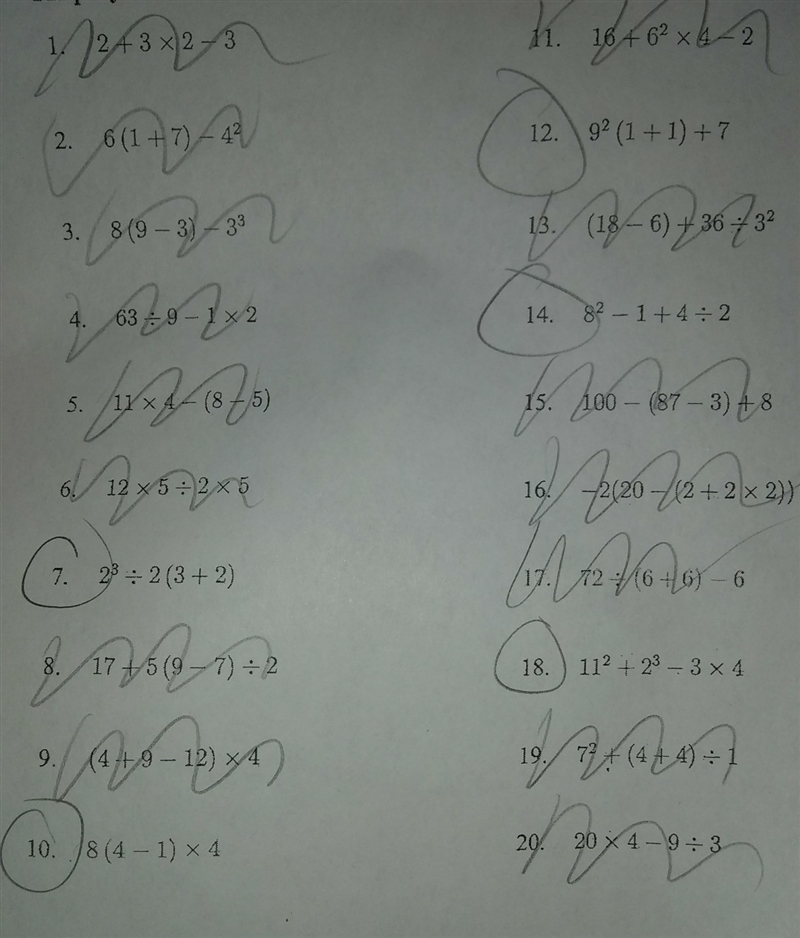 1. 2 + 3 × 2 − 3
2. 6 (1 + 7) − 4²
3. 8 (9 − 3) − 3³
4. 63 ÷ 9 − 1 × 2
5. 11 × 4 − (8 − 5)
6. 12 × 5 ÷ 2 × 5
7. 2³ ÷ 2 (3 + 2)
8. 17 + 5 (9 − 7) ÷ 2
9. (4 + 9 − 12) × 4
10. 8 (4 − 1) × 4
11. 16 + 6² × 4 − 2
12. 9² (1 + 1) + 7
13. (18 − 6) + 36 ÷ 3²
14. 8² − 1 + 4 ÷ 2
15. 100 − (87 − 3) + 8
16. −2(20 − (2 + 2 × 2))
17. 72 ÷ (6 + 6) − 6
18. 11² + 2³ − 3 × 4
19. 7² + (4 + 4) ÷ 1
20. 20 × 4 − 9 ÷ 3